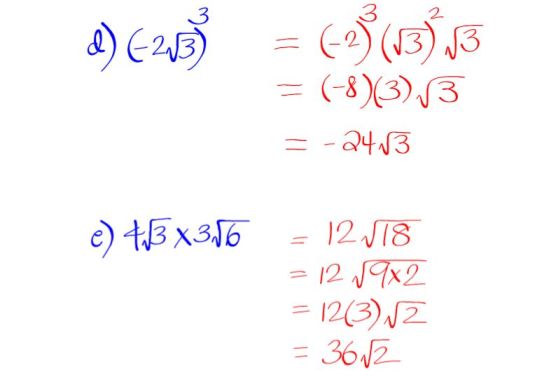 d) (-2√3)³ = (-2)³ (√3)² √3
= (-8)(3) √3
= -24√3
e) 4√3 × 3√6 = 12 √18
= 12 √9×2
= 12(3) √2
= 36√2